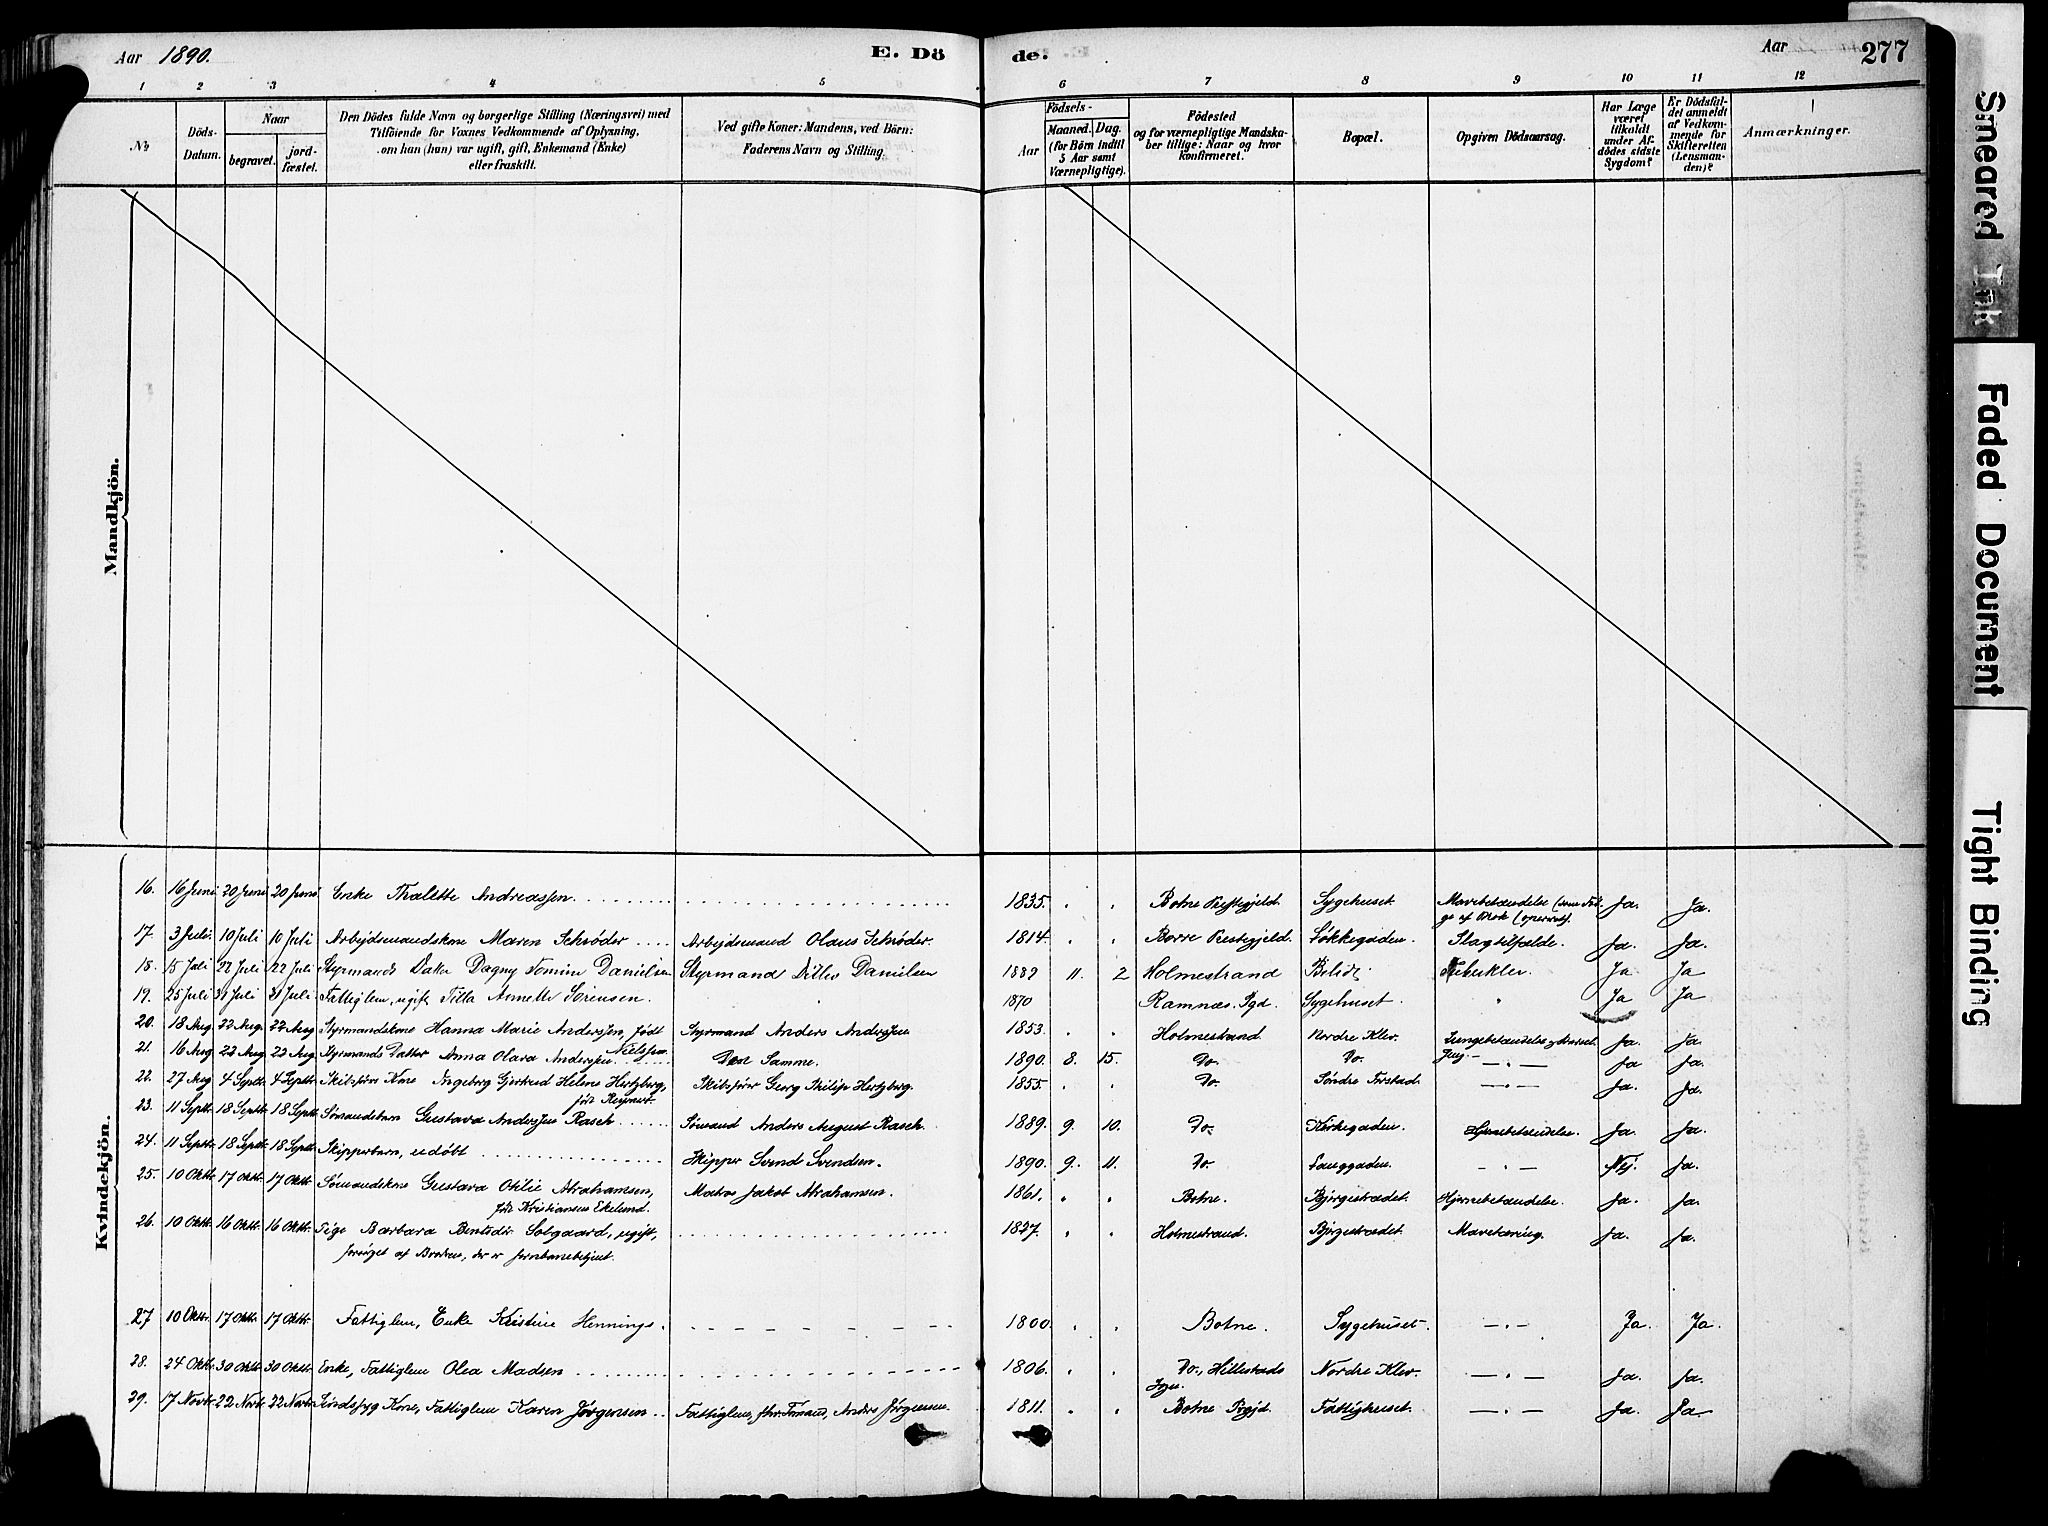 Aar 1890. E. Dö de. Aar 277
1 2 3 4 5 6 7 8 9 10 11 12
No
Döds-Datum.
Naar
begravet.
jord-fæstet.
Den Dödes fulde Navn og borgerlige Stilling (Næringsvei) med
Tilföiende for Voxnes Vedkommende af Oplysning,
om han (hun) var ugift, gift, Enkemand (Enke)
eller fraskilt.
Ved gifte Koner: Mandens, ved Börn:
Faderens Navn og Stilling.
Födsels-
Aar
Maaned. Dag.
(for Börn indtil
5 Aar samt
Værnepligtige).
Födested
og for værnepligtige Mandska-
ber tillige: Naar og hvor
konfirmeret.
Bopæl.
Opgiven Dödsaarsag.
Har Læge
været
tilkaldt
under Af-
dödes sidste
Sygdom?
Er Dödsfal-
det anmeldt
af Vedkom-
mende for
Skifteretten
(Lensman-
den)?
Anmærkninger.
Mandkjön.
Kvindekjön.
16. 16 Juni 20 Juni 20 Juni Enke Thalette Andreassen. 1835. Botne Prestegjeld. Sygehuset Mavebetændelse Ja. Ja.
17. 3 Juli 10 Juli 10 Juli Arbejdsmandskone Maren Schrøder Arbejdsmand Olaus Schrøder. 1814. Borre Prestegjeld. Løkkegaden. Slagtilfælde. Ja. Ja.
18. 15 Juli 22 Juli 22 Juli Styrmands Datter Dagny Tomine Danielsen Styrmand Ditlev Danielsen 1889 11. 2 Holmestrand Tuberkler. Ja Ja
19. 25 Juli 31 Juli 31 Juli Fattiglem, ugift Annette Sørensen. 1870 Ramnæs. Pgd. Sygehuset. Ja Ja
20. 18 Aug. 22 Aug. 22 Aug. Styrmandskone Hanna Marie Anderssen, født Nielssen Styrmand Anders Anderssen 1853. Holmestrand Nordre Klev. Lungebetændelse Ja. Ja.
21. 16 Aug. 22 Aug. 22 Aug. Styrmands Datter Anna Olava Anderssen Den Samme. 1890. 8. 15. Do. Do. Ja Ja.
22. 27 Aug. 4 Septb. 4 Septb. Skibsfører Kone Ingeborg Gjertrud Helene Hertzberg, Skibsfører Georg Philip Hertzberg. 1855. Do. Søndre Torstad. Ja. Ja.
23. 11 Septb. 18 Septb. 18 Septb. Sømandsbarn Gustava Anderssen Rasch Sømand Anders August Rasch. 1889. 9. 10. Do. Kirkegaden. Hjernebetændelse. Ja. Ja.
24. 11 Septb. 18 Septb. 18 Septb. Skipperbarn, udøbt Skipper Svend Svendsen. 1890. 9. 11. Do. Langgaden. Nej. Ja.
25. 10 Oktb. 17 Oktb. 17 Oktb. Sømandskone Gustava Otilie Abrahamsen, født Kristiansen Ekelund. Matros Jakob Abrahamsen. 1861. Botne. Bjørgestrædet. Hjernebetændelse. Ja. Ja.
26. 10 Oktb. 16 Oktb. 16 Oktb. Pige Barbara Solgaard, ugift, 1827. Holmestrand. Bjørgestrædet. Mavetæring. Ja. Ja.
forsørget af Broderen, der er Jernbanebetjent.
27 10 Oktb. 17 Oktb. 17 Oktb. Fattiglem, Enke Kristine Hennings. 1800. Botne. Sygehuset. Ja. Ja.
28. 24 Oktb. 30 Oktb. 30 Oktb. Enke, Fattiglem Olea Madsen 1806. Do., Hillestads Sogn. Nordre Klev. Ja. Ja.
29. 17 Novb. 22 Novb. 22 Novb. Sindssyg Kone, Fattiglem Karen Jørgensen Fattiglem, Anders Jørgensen. 1811. Botne Pgjd. Fattighuset. Ja. Ja.
Smeared Ink
Faded Document
Tight Binding